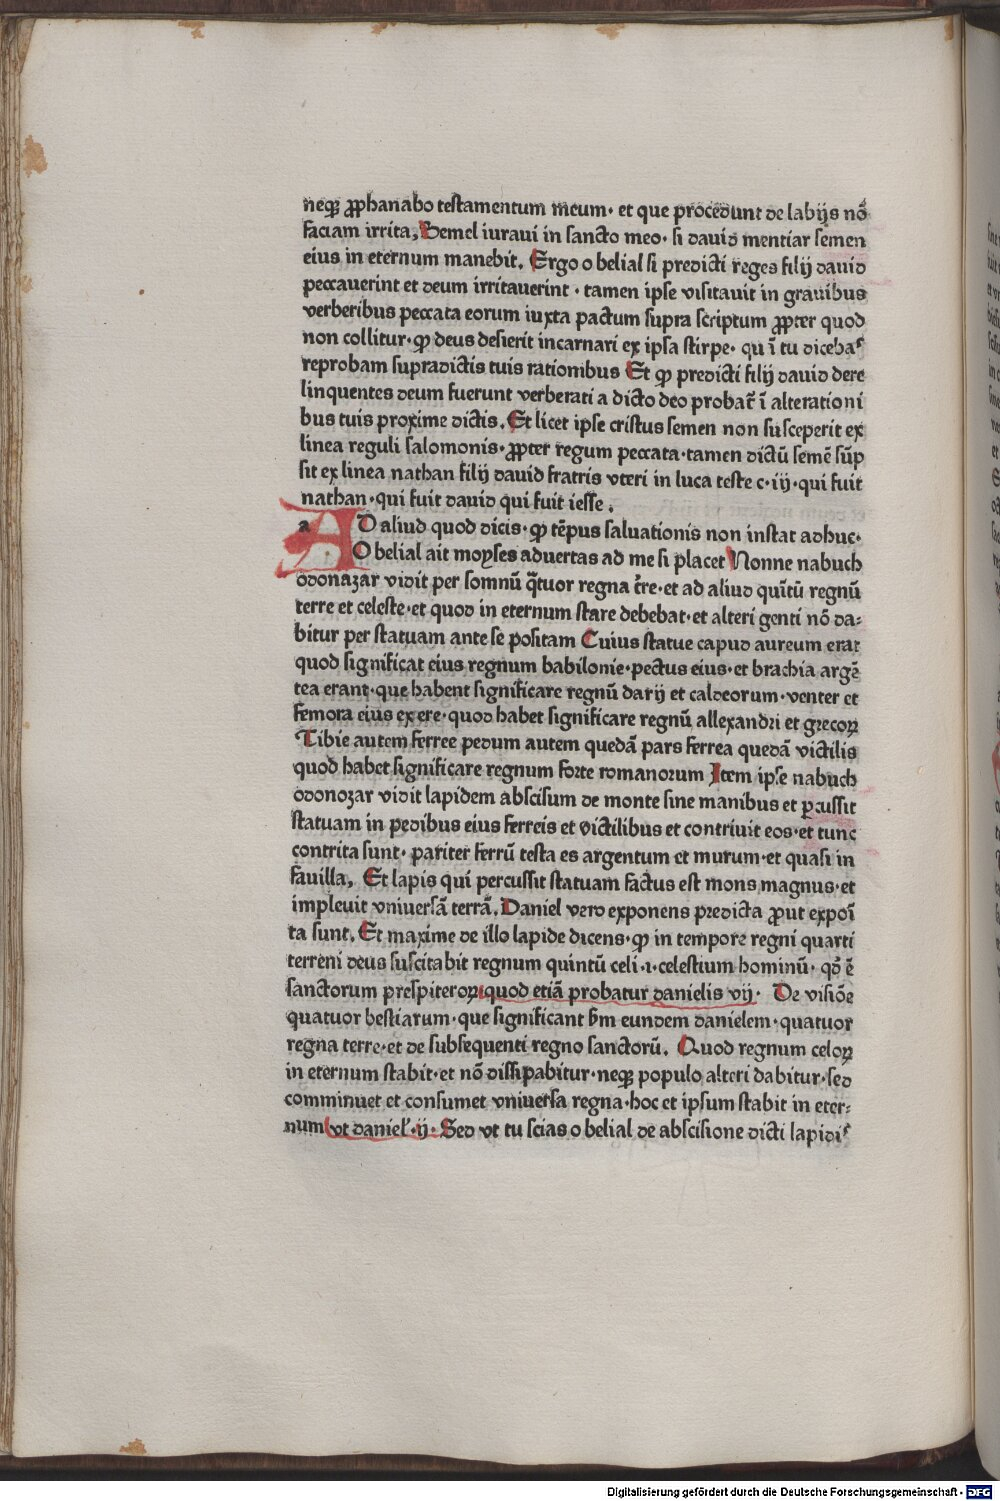 neqꝫ ꝓphanabo testamentum meum· et que procedunt de labijs nō
faciam irrita, Semel iuraui in sancto meo· si dauid mentiar semen
eius in eternum manebit. Ergo o belial si predicti reges filij dauid
peccauerint et deum irritauerint · tamen ipse visitauit in grauibus
verberibus peccata eorum iuxta pactum supra scriptum ꝓpter quod
non collitur· ꝙ deus desierit incarnari ex ipsa stirpe· qu ī tu dicebaˢ
reprobam supradictis tuis rationibus Et ꝙ predicti filij dauid dere
linquentes deum fuerunt verberati a dicto deo probat᷑ ī alterationi
bus tuis proxime dictis. Et licet ipse cristus semen non susceperit ex
linea reguli salomonis· ꝓpter regum peccata·tamen dictū semē sūp
sit ex linea nathan filij dauid fratris vteri in luca teste c·iij·qui fuit
nathan·qui fuit dauid qui fuit iesse .
a AD aliud quod dicis· ꝙ tēpus saluationis non instat adhuc·
O belial ait moyses aduertas ad me si placet Nonne nabuch
odonazar vidit per somnū q̄tuor regna t᷑re·et ad aliud quītū regnū
terre et celeste·et quod in eternum stare debebat·et alteri genti nō da⸗
bitur per statuam ante se positam Cuius statue capud aureum erat
quod significat eius regnum babilonie·pectus eius·et brachia argē
tea erant·que habent significare regnū darij et caldeorum·venter et
femora eius ex ere·quod habet significare regnū allexandri et grecoꝝ
Tibie autem ferree pedum autem quedā pars ferrea quedā victilis
quod habet significare regnum forte romanorum Item ipse nabuch
odonozar vidit lapidem abscisum de monte sine manibus et ꝑcussit
statuam in pedibus eius ferreis et victilibus et contriuit eos·et tunc
contrita sunt· pariter ferrū testa es argentum et murum·et quasi in
fauilla, Et lapis qui percussit statuam factus est mons magnus·et
impleuit vniuersā terrā. Daniel vero exponens predicta ꝓut expoī
ta sunt. Et maxime de illo lapide dicens·ꝙ in tempore regni quarti
terreni deus suscitabit regnum quintū celi·i·celestium hominū· qd̕ ē
sanctorum prespiteroꝝ quod etiā probatur danielis vij· De visiōe
quatuor bestiarum·que significant ẜm eundem danielem·quatuor
regna terre·et de subsequenti regno sanctorū. Quod regnum celoꝝ
in eternum stabit·et nō dissipabitur·neqꝫ populo alteri dabitur·sed
comminuet et consumet vniuersa regna·hoc et ipsum stabit in eter⸗
num vt daniel̕·ij· Sed vt tu scias o belial de abscisione dicti lapidiˢ
Digitalisierung gefördert durch die Deutsche Forschungsgemeinschaft - DFG